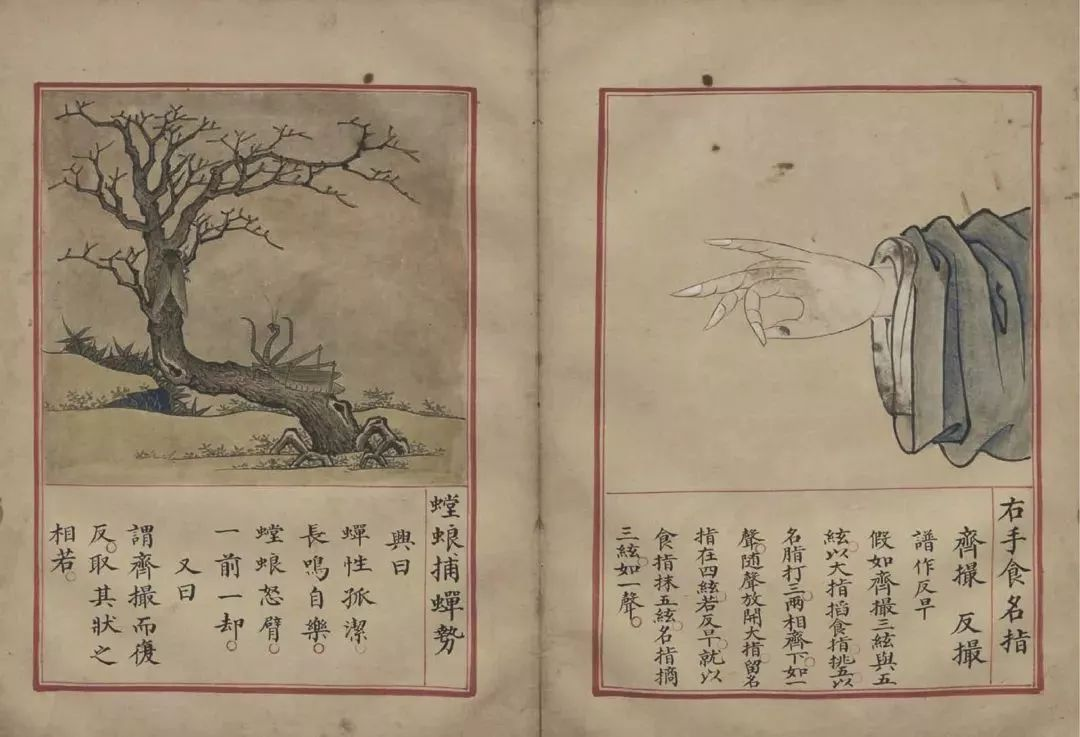 右手食名指
齊撮 反撮
譜作反早
假如齊撮三絃與五
絃。以大指搯食指挑五。以
名指打三。兩相齊下。如一
聲。隨聲放開大指。留名
指在四絃。若反早。就以
食指抹五絃。名指摘
三絃。如一聲。
螳蜋捕蟬勢
興曰
蟬性孤潔。
長鳴自樂。
螳蜋怒臂。
一前一却。
又曰
謂齊撮而復
反。取其狀之
相若。